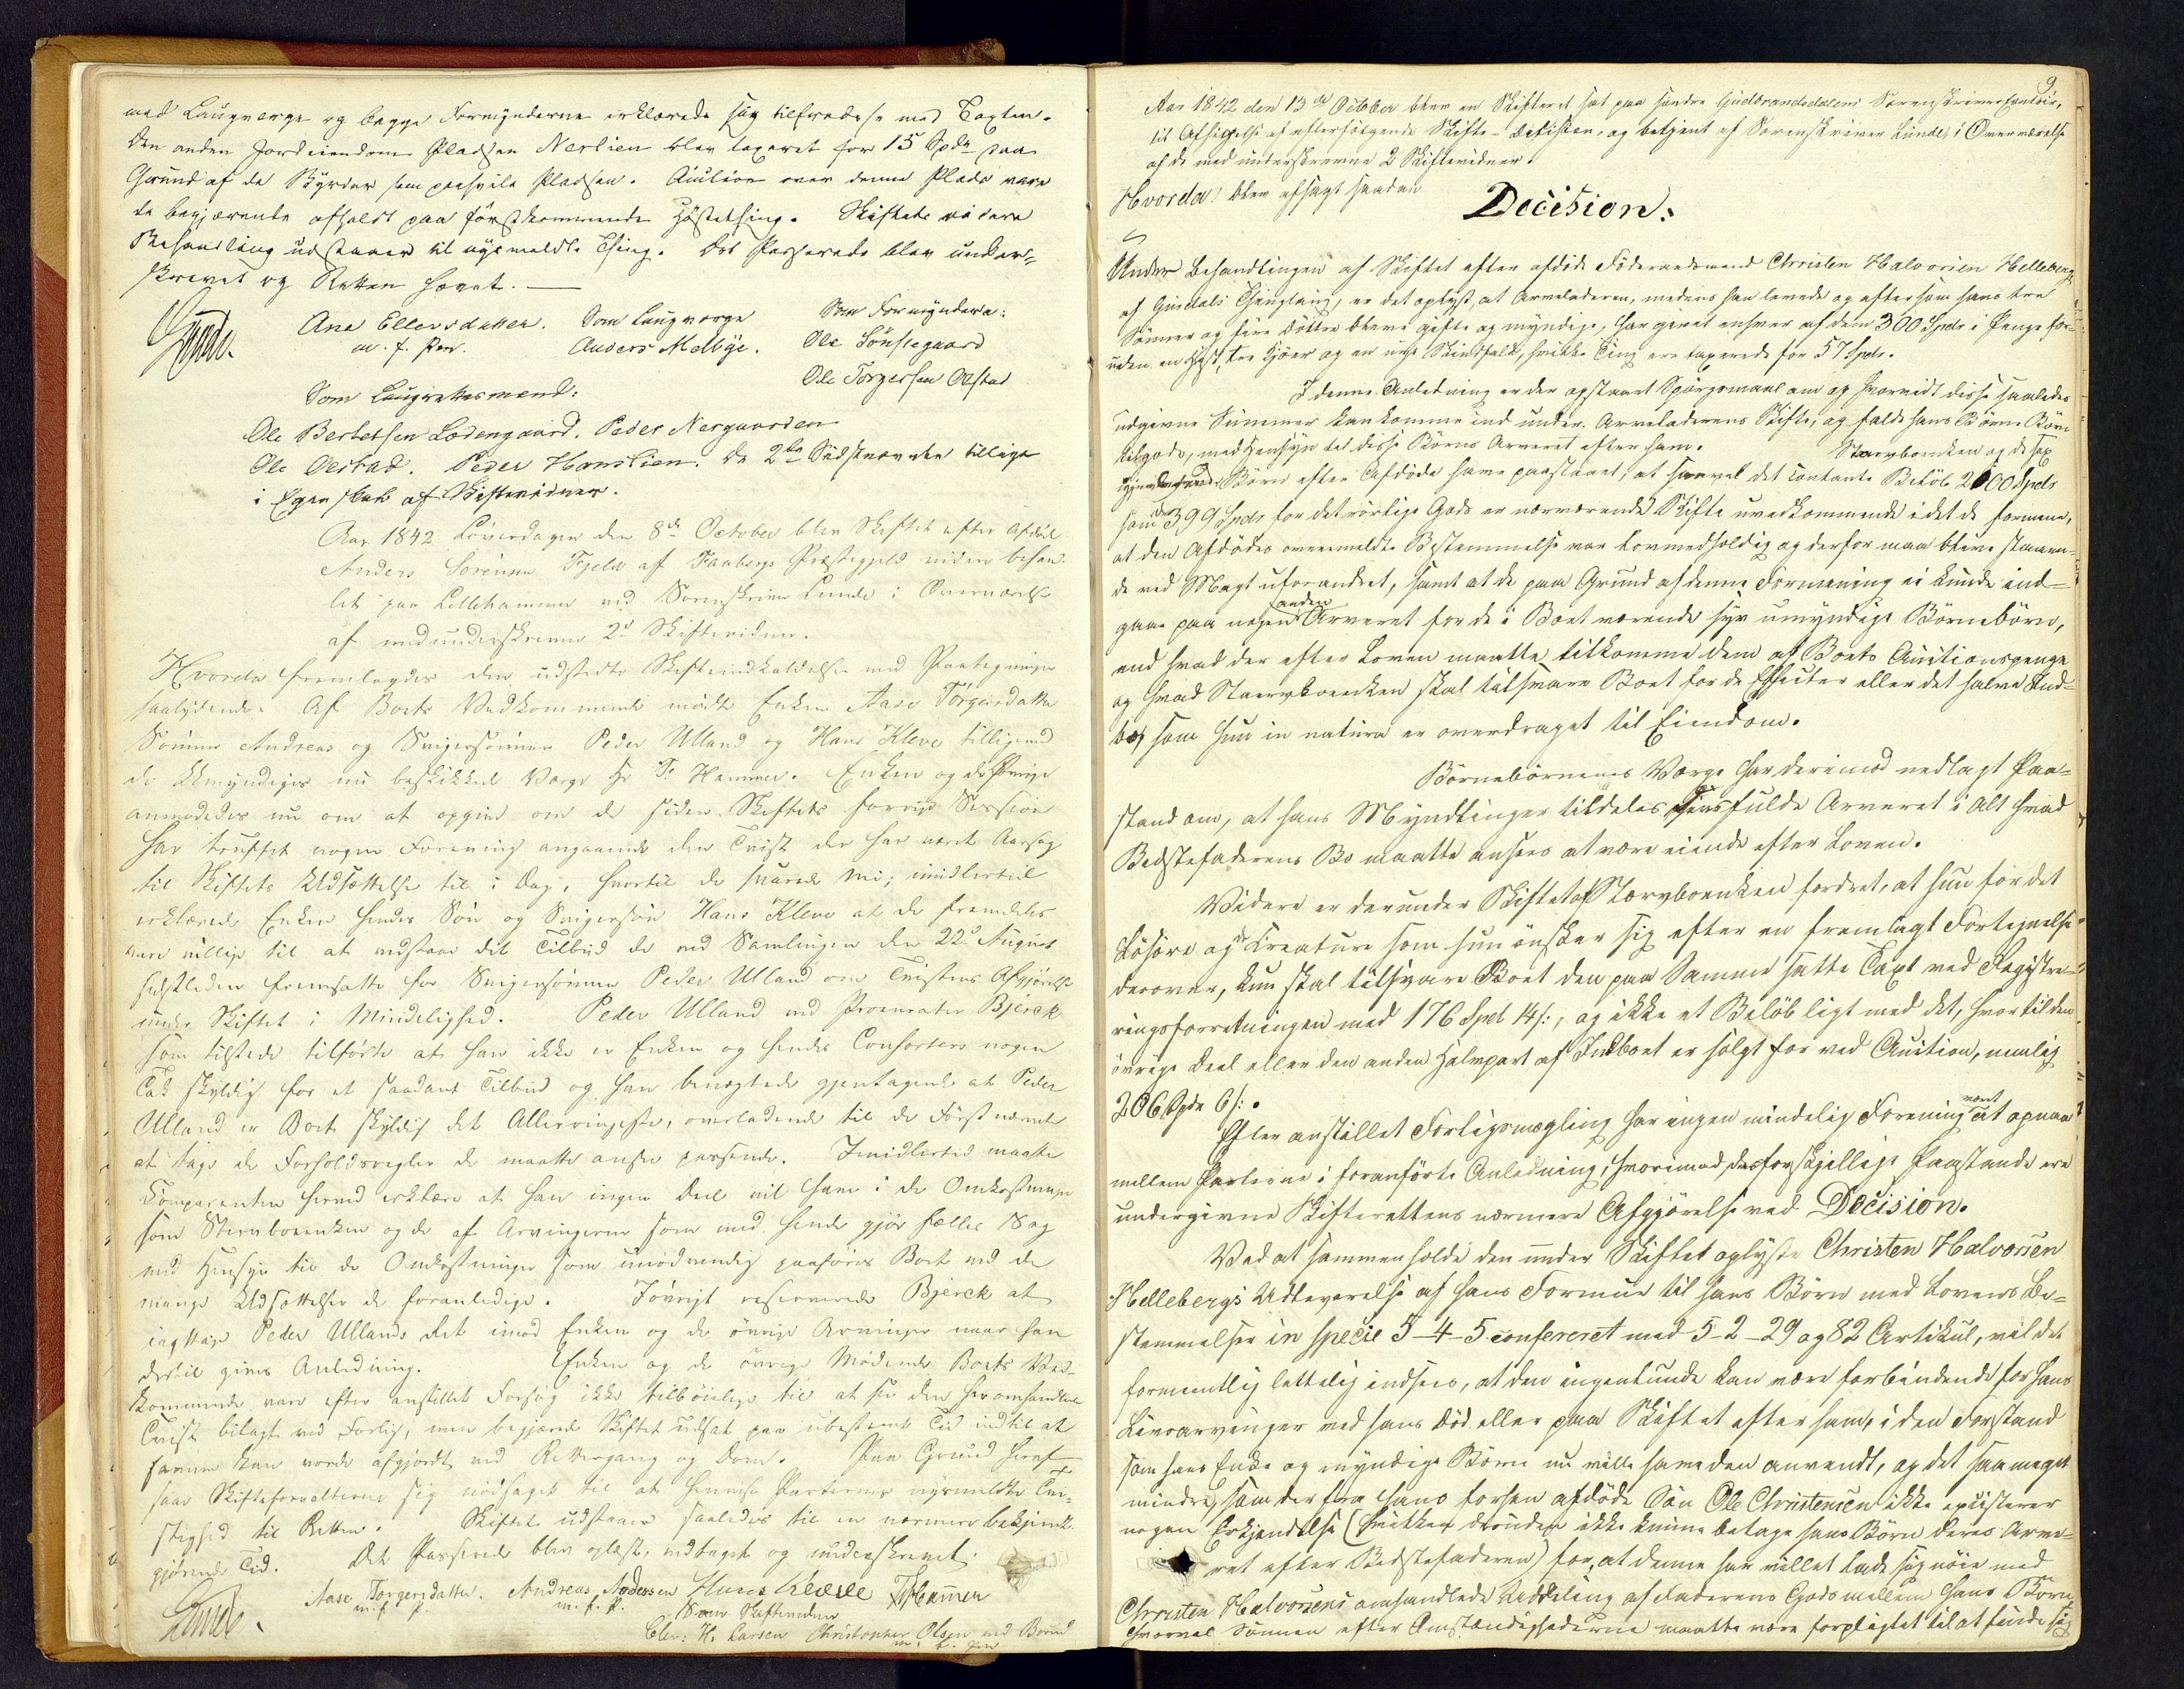 med Laugværge og begge Formynderne erklærede sig tilfredse med Taxten.
Den anden Jordeiendom Pladsen Nerlien blev taxeret for 15 Spdr paa
Grund af de Byrder som paahvile Pladsen. Auction over denne Plads være
de begjærende afholdt paa förstkommende Høstething. Skiftets videre
Behandling udstaaer til nysmeldte Thing. Det Passerede blev under-
skrevet og Retten hævet.
Lunde.
Ane Ellersdatter. Som Laugværge Som Formyndere:
m. f. Pen. Anders Melbye. Ole Lönsegaard
Ole Torgersen Olstad
Som Laugrettesmend.
Ole Bertelsen Lodengaard. Peder Nergaarden
Ole Olstad. Peder Hanslien. De 2de Sidstnævnte tillige
i Egenskab af Skiftevidner.
Aar 1842 Löverdagen den 8de October blev Skiftet efter Afdöde
Anders Sörensen Fjeld af Faabergs Præstegjeld videre behand-
let paa Lillehammer ved Sorenskriver Lunde i Overværelse
af medunderskrevne 2de Skiftevidner.
Hvorda fremlagdes den udstedte Skifteindkaldelse med Paategninger
saalydende. Af Boets Vedkommende mödte Enken Aase Törgersdatter
Sönnen Andreas og Svigersönnen Peder Ulland og Hans Kleve tilligemed
de Umyndiges nu beskikkede Værge Hr T. Hammer. Enken og de Övrige
anmodedes nu om at opgive om de siden Skiftets forrige Session
har truffet nogen Forening angaaende den Tvist der har været Aarsag
til Skiftets Udsættelse til i Dag, hvortil de svarede Nei; imidlertid
erklærede Enken hendes Sön og Svigersön Hans Kleve at de fremdeles
vare villige til at vedstaae det Tilbud de ved Samlingen den 22de August
sidstleden fremsatte for Svigersönnen Peder Ulland om Tvistens Afgjörelse
under Skiftet i Mindelighed. Peder Ulland ved Procurator Bjerck
som tilstede tilförte at han ikke er Enken og hendes Consorters nogen
Tak skyldig for et saadant Tilbud og han benægtede gjentagende at Peder
Ulland er Boet skyldig det Allerringeste, overladende til de Förstnævnte
at tage de Forholdsregler de maatte ansee passende. Imidlertid maatte
Comparenten herved erklære at han ingen Deel vil have i de Omkostninger
som Stervboenken og de af Arvingerne som med hende gjör fælles Sag
med Hensyn til de Omkostninger som unödvendig paaföres Boet ved de
mange Udsættelser de foranledige. Iövrigt reserverede Bjerck at
iagttage Peder Ullands Ret imod Enken og de övrige Arvinger naar han
dertil gives Anledning. Enken og de övrige Mödende Boets Ved-
kommende vare efter anstillet Forsög ikke tilböielige til at see den heromhandlede
Tvist bilagt ved Forlig, men begjærede Skiftet udsat paa ubestemt Tid indtil at
samme kan vorde afgjordt ved Rettergang og Dom. Paa Grund heraf
saae Skifteforvalteren sig nödsaget til at henvise Parterne nysmeldte Tvi-
stighed til Retten. Skiftet udstaaer saaledes til en nærmere bekjendt-
gjörende Tid. Det Passerede blev oplæst, vedtaget og underskrevet.
Lunde. Aase Torgersdatter. Andreas Andersen Hans Kleve THammer
m. f. P. m. f. P. Som Skiftevidner
Chr: H. Larsen Christopher Olsen ved Baand
m. f. Pen
9
Aar 1842 den 13de October blev en Skifteret sat paa söndre Gudbrandsdalens Sorenskrivercontoir,
til Afsigelse af efterfölgende Skifte-Decision, og betjent af Sorenskriver Lunde i Overværelse
af de medunderskrevne 2 Skiftevidner.
Hvorda! blev afsagt saadan
Decision:
Under Behandlingen af Skiftet efter afdöde Föderaadsmand Christen Halvorsen Helleberg
af Gusdals Thinglaug, er det oplyst, at Arveladeren, medens han levede og eftersom hans tre
Sönner og fire Döttre bleve gifte og myndige, har givet enhver af dem 300 Spdr i Penge for-
uden en Hest, tre Kjöer og en unge Skindfeld, hvilke Ting ere taxerede for 57 Spdr.
I denne Anledning er der opstaaet Spörgsmaal om og hvorvidt disse saaledes
udgivne Summer kan komme ind under Arveladerens Skifte, og falde hans Börne Börn
tilgode, med Hensyn til disse Börns Arveret efter ham. Stervboenken og de sex
Börn efter Afdöde have paastaaet, at saavel det contante Belöb 2100 Spdr
som de 399 Spdr for det rörlige Gods er nærværende Skifte uvedkommende idet de formene,
at den Afdödes ovenmeldte Bestemmelse var lovmedholdig og derfor maa blive staaen-
de ved Magt uforandret, samt at de paa Grund af denne Formening ei kunde ind-
gaae paa nogen anden Arveret for de i Boet værende syv umyndige Börnebörn,
end hvad der efter Loven maatte tilkomme dem af Boets Auctionspenge
og hvad Stervboenken skal tilsvare Boet for de Effecter eller det halve Ind-
boe, som hun in natura er overdraget til Eiendom.
Börnebörnenes Værge har derimod nedlagt Paa-
stand om, at hans Myndlinger tildeles deres fulde Arveret i Alt hvad
Bedstefaderens Bo maatte ansees at være eiende efter Loven.
Videre er derunder Skiftet af Stervboenken fordret, at hun for det
Lösöre og de Creature som hun önsker sig efter en fremlagt Fortegnelse
derover, kun skal tilsvare Boet den paa Samme satte Taxt ved Registre-
ringsforretningen med 176 Spd 14 s:, og ikke et Belöb ligt med det, hvortil den
övrige Deel eller den anden Halvpart af Indboet er solgt for ved Auction, nemlig
206 Spdr 6 s:.
Efter anstillet Forligsmægling har ingen mindelig Forening været at opnaae
mellem Parterne i foranförte Anledning, hvorimod deres forskjellige Paastande ere
undergivne Skifterettens nærmere Afgjörelse ved Decision.
Ved at sammenholde den under Skiftet oplyste Christen Halvorsen
Hellebergs Udleverelse af hans Formue til hans Börn med Lovens Be-
stemmelser in specie 5-4-5 confereret med 5-2-29 og 82 Artikul, vil det
formeentlig lettelig indsees, at den ingenlunde kan være forbindende for hans
Livsarvinger ved hans Död eller paa Skiftet efter ham, i den Forstand
som hans Enke og myndige Börn nu ville have den anvendt, og det saameget
mindre, som der fra hans forhen afdöde Sön Ole Christensen ikke existerer
nogen Erkjendelse (hvilken desuden ikke kunne betage hans Börn deres Arve-
ret efter Bedstefaderen) for, at denne har villet lade sig nöie med
Christen Halvorsens omhandlede Uddeling af Faderens Gods mellem hans Börn,
hvorvel Sönnen efter Omstændighederne maatte være forpligtet til at finde sig